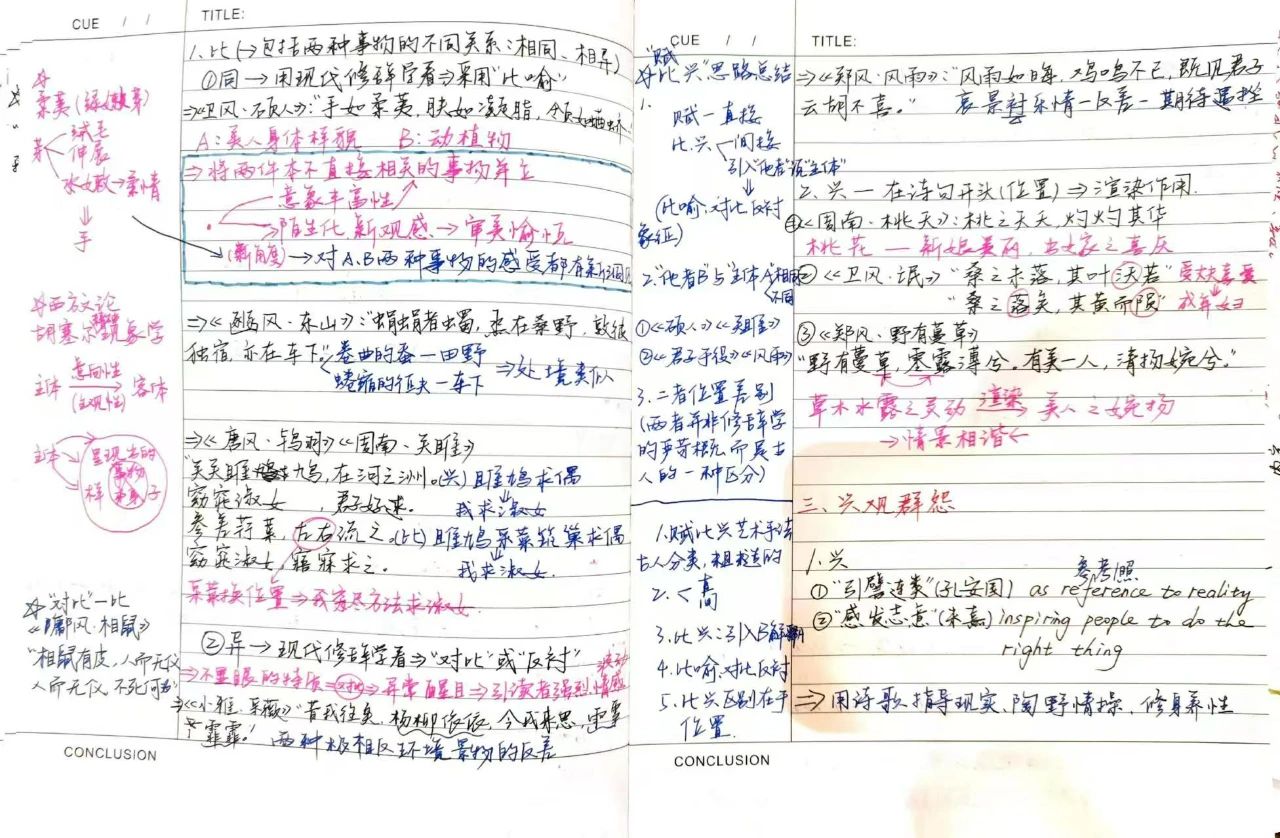 CUE / /
TITLE:
柔荑(绿如嫩草)
茅
绒毛
伸展
水嫩→柔情
手
西方文论
胡塞尔现象学
主体 意向性 客体
(主观性)
主体
呈现出的
事物
样 本身 子
"对比"一比
《鄘风·相鼠》
"相鼠有皮,人而无仪
人而无仪,不死何为"
1.比(→包括两种事物的不同关系:相同、相异)
①同→用现代修辞学看⇒采用"比喻"
⇒《卫风·硕人》:"手如柔荑,肤如凝脂,领如蝤蛴"
A:美人身体样貌 B:动植物
⇒将两件本不直接相关的事物并立
意象丰富性
陌生化 新观感→审美愉悦
(新角度)→对A.B两种事物的感受都有新
⇒《豳风·东山》:"蜎蜎者蠋,烝在桑野,敦彼
独宿,亦在车下"
卷曲的蚕一田野
蜷缩的征夫一车下
⇒处境类似
⇒《唐风·鸨羽》《周南·关雎》
"关关雎鸠,在河之洲。(兴)雎鸠求偶
窈窕淑女,君子好逑。 我求淑女
参差荇菜,左右流之。(比)雎鸠采菜筑巢求偶
窈窕淑女,寤寐求之。 我求淑女.
采菜换位置⇒我穷尽方法求淑女.
②异→现代修辞学看⇒"对比"或"反衬"
⇒不显眼的特质⇒对比⇒异常醒目⇒引读者强烈情感
⇒《小雅·采薇》"昔我往矣,杨柳依依,今我来思,雨雪
霏霏." 两种极相反环境景物的反差
CONCLUSION
CUE / /
TITLE:
"赋
比兴"思路总结
1.
赋一直接
比.兴 间接
引入"他者"说"主体"
(比喻.对比反衬
象征)
2."他者B"与"主体A"相同
不同
①《硕人》《关雎》
②《君子于役》《风雨》
3.二者位置差别
(两者并非修辞学
的严苛概念而是古
人的一种区分)
1.赋比兴艺术手法
古人分类,粗糙的
2.<高
3.比兴:引入B解释A
4.比喻.对比反衬
5.比兴区别在于
位置.
⇒《郑风·风雨》:"风雨如晦,鸡鸣不已,既见君子
云胡不喜。" 哀景衬乐情一反差一期待遇挫
2.兴一在诗句开头(位置)⇒渲染作用.
①《周南·桃夭》:桃之夭夭,灼灼其华
桃花一新娘美丽,出嫁之喜庆
②《卫风·氓》"桑之未落,其叶沃若" 受丈夫喜爱
"桑之落矣,其黄而陨" 成弃妇
③《郑风·野有蔓草》
"野有蔓草,零露漙兮。有美一人,清扬婉兮。"
草木水露之灵动 渲染 美人之婉扬
→情景相谐←
三、兴观群怨
1.兴
参考照
①"引譬连类"(孔安国) as reference to reality
②"感发志意"(朱熹) inspiring people to do the
right thing
⇒用诗歌指导现实、陶野情操、修身养性
CONCLUSION